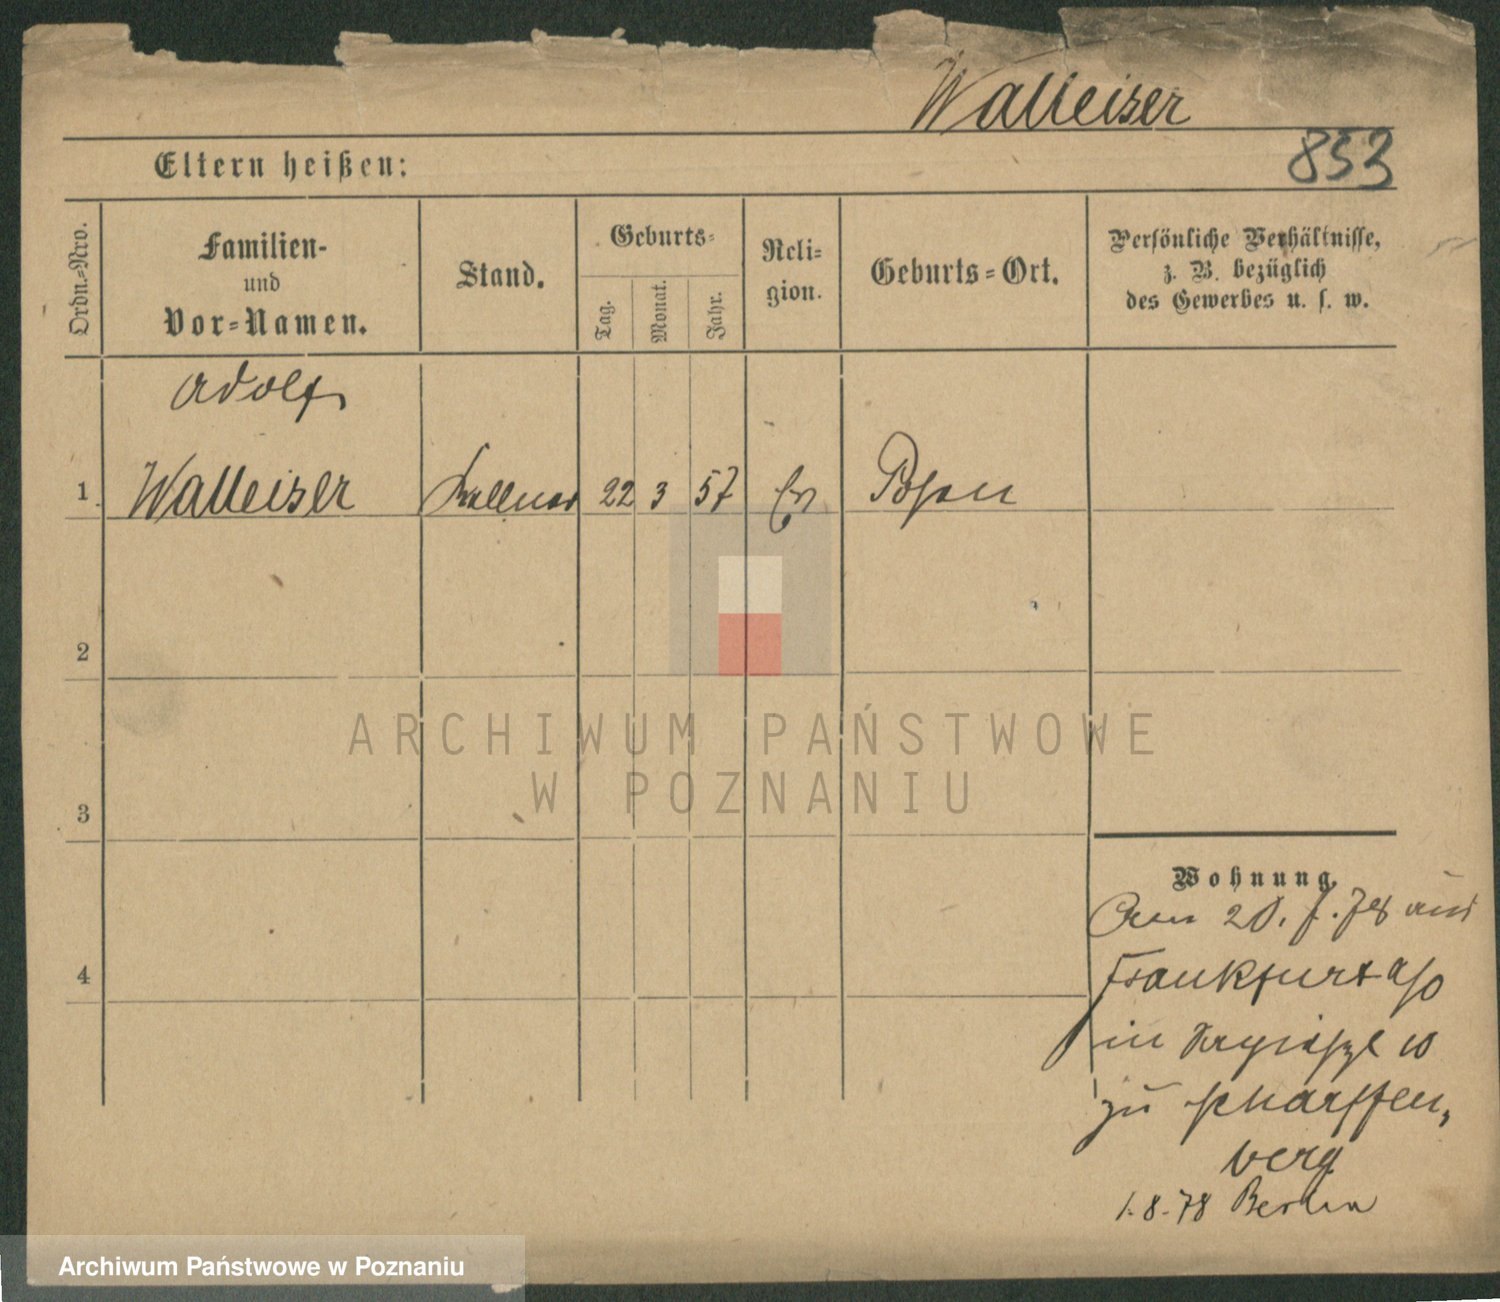 Walleiser
Eltern heißen:
853
Ordn.-Nro.
Familien-
und
Vor-Namen.
Stand.
Geburts-
Tag.
Monat.
Jahr.
Reli-
gion.
Geburts-Ort.
Persönliche Verhältnisse,
z. B. bezüglich
des Gewerbes u. s. w.
Adolf
1
Walleiser
Kellner
22
3
57
Ev
Posen
2
3
4
Wohnung.
20. 78 aus
Frankfurt a/o
in 10
zu Scharffen-
berg
1.8.78 Berlin
ARCHIWUM PAŃSTWOWE
W POZNANIU
Archiwum Państwowe w Poznaniu